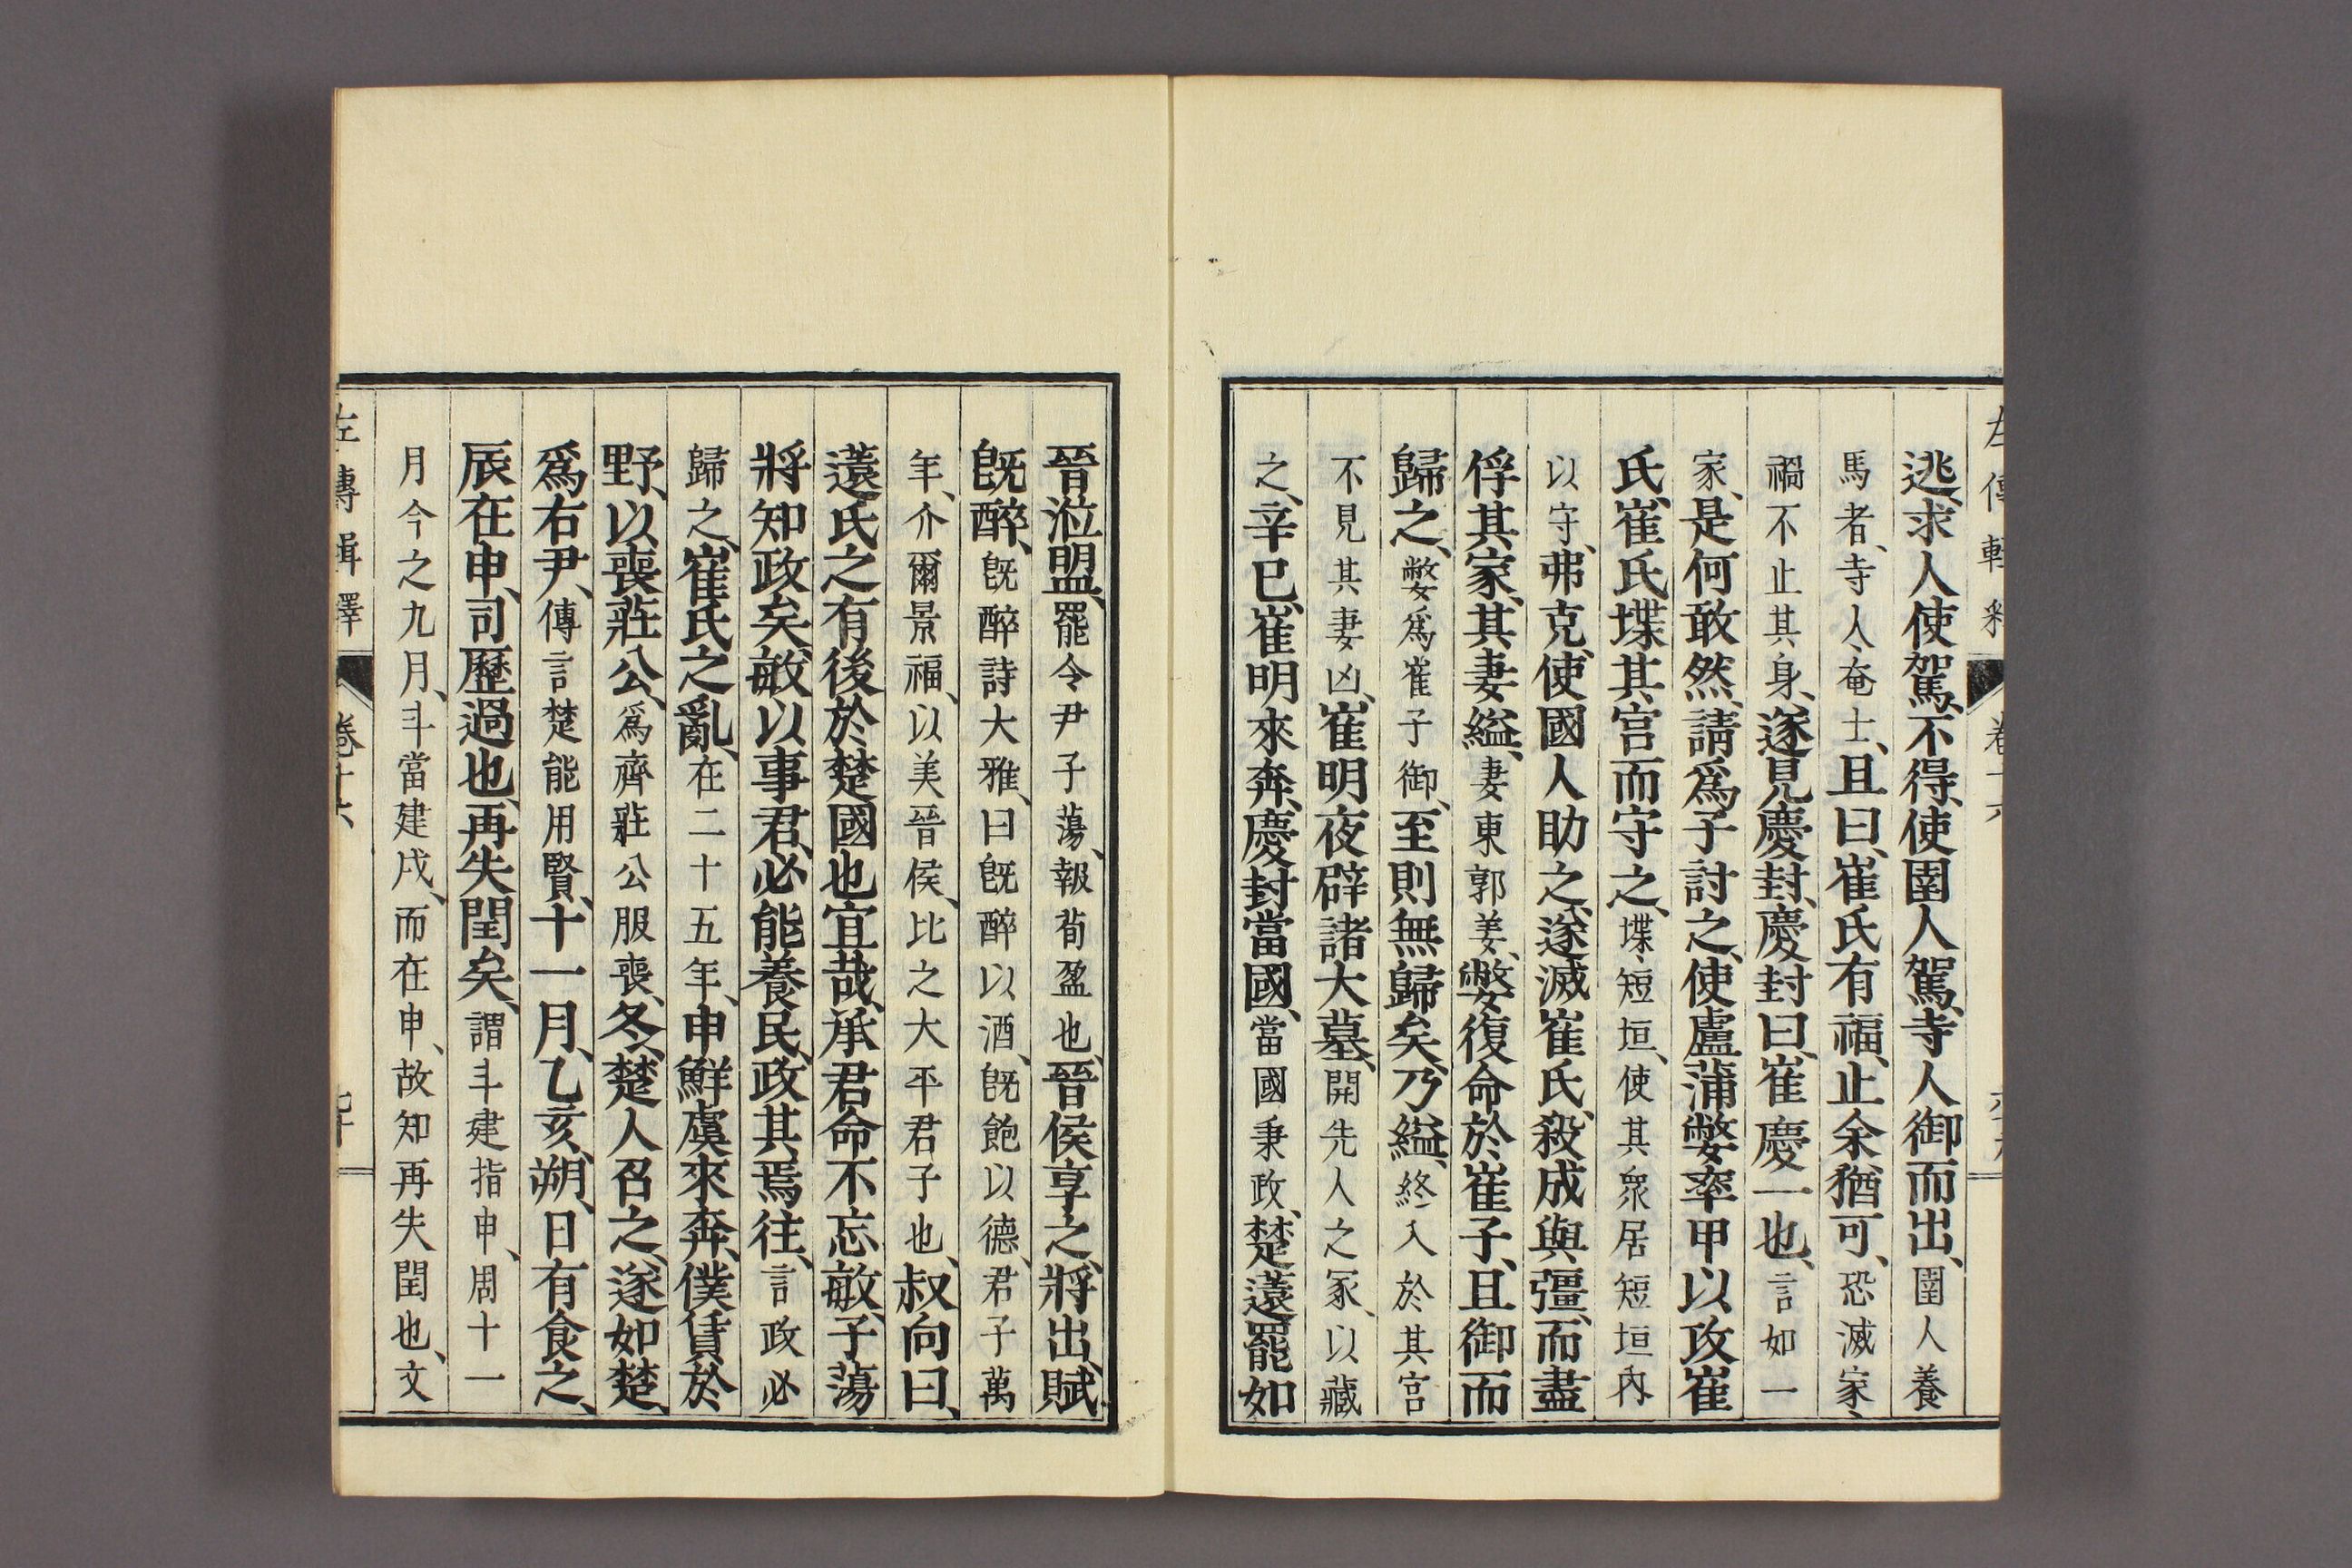 逃、求人使駕、不得、使圉人駕、寺人御而出、圉人養
馬者、寺人、奄士、且曰、崔氏有福、止余猶可、恐滅家、
禍不止其身、遂見慶封、慶封曰、崔慶一也、言如一
家、是何敢然、請爲子討之、使盧蒲嫳率甲以攻崔
氏、崔氏堞其宮而守之、堞、短垣、使其衆居短垣內
以守、弗克、使國人助之、遂滅崔氏、殺成與彊、而盡
俘其家、其妻縊、妻東郭姜、嫳復命於崔子、且御而
歸之、嫳爲崔子御、至則無歸矣、乃縊、終入於其宮
不見其妻凶、崔明夜辟諸大墓、開先人之冢、以藏
之、辛巳、崔明來奔、慶封當國、當國秉政、楚薳罷如
晉涖盟、罷令尹子蕩、報荀盈也、晉侯享之、將出、賦
旣醉、旣醉詩大雅、曰旣醉以酒、旣飽以德、君子萬
年、介爾景福、以美晉侯、比之大平君子也、叔向曰、
薳氏之有後於楚國也宜哉、承君命不忘敏、子蕩
將知政矣、敏以事君、必能養民、政其焉往、言政必
歸之、崔氏之亂、在二十五年、申鮮虞來奔、僕賃於
野、以喪莊公、爲齊莊公服喪、冬、楚人召之、遂如楚、
爲右尹、傳言楚能用賢、十一月、乙亥、朔、日有食之、
辰在申、司歷過也、再失閏矣、謂斗建指申、周十一
月今之九月、斗當建戌、而在申、故知再失閏也、文
左傳輯釋
卷十六